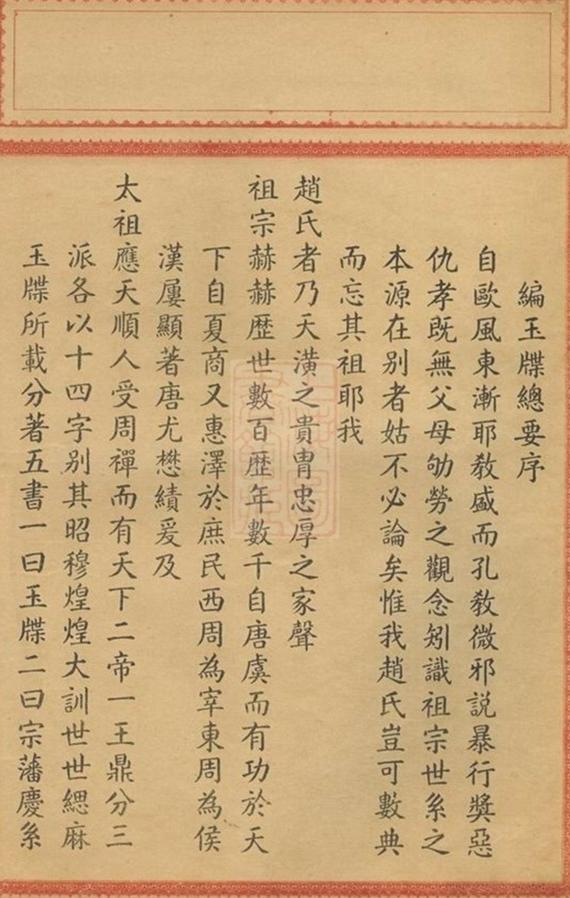 編玉牒總要序
自歐風東漸耶教盛而孔教微邪說暴行獎惡
仇孝既無父母劬勞之觀念矧識祖宗世系之
本源在别者姑不必論矣惟我趙氏豈可數典
而忘其祖耶我
趙氏者乃天潢之貴胄忠厚之家聲
祖宗赫赫歴世數百歴年數千自唐虞而有功於天
下自夏商又惠澤於庶民西周為宰東周為侯
漢屢顯著唐尤懋績爰及
太祖應天順人受周禪而有天下二帝一王鼎分三
派各以十四字别其昭穆煌煌大訓世世緦麻
玉牒所載分著五書一曰玉牒二曰宗藩慶系